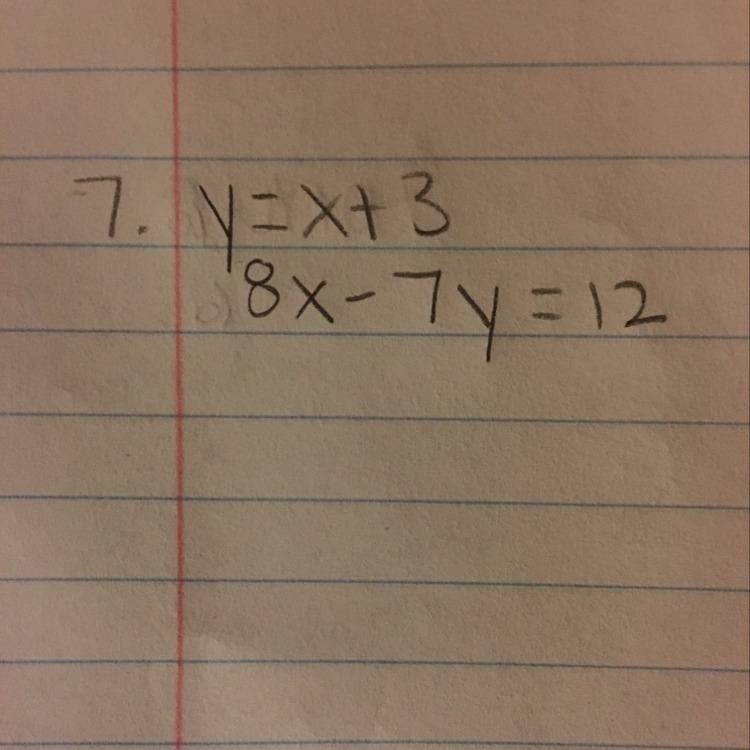 7. y=x+3
8x-7y=12